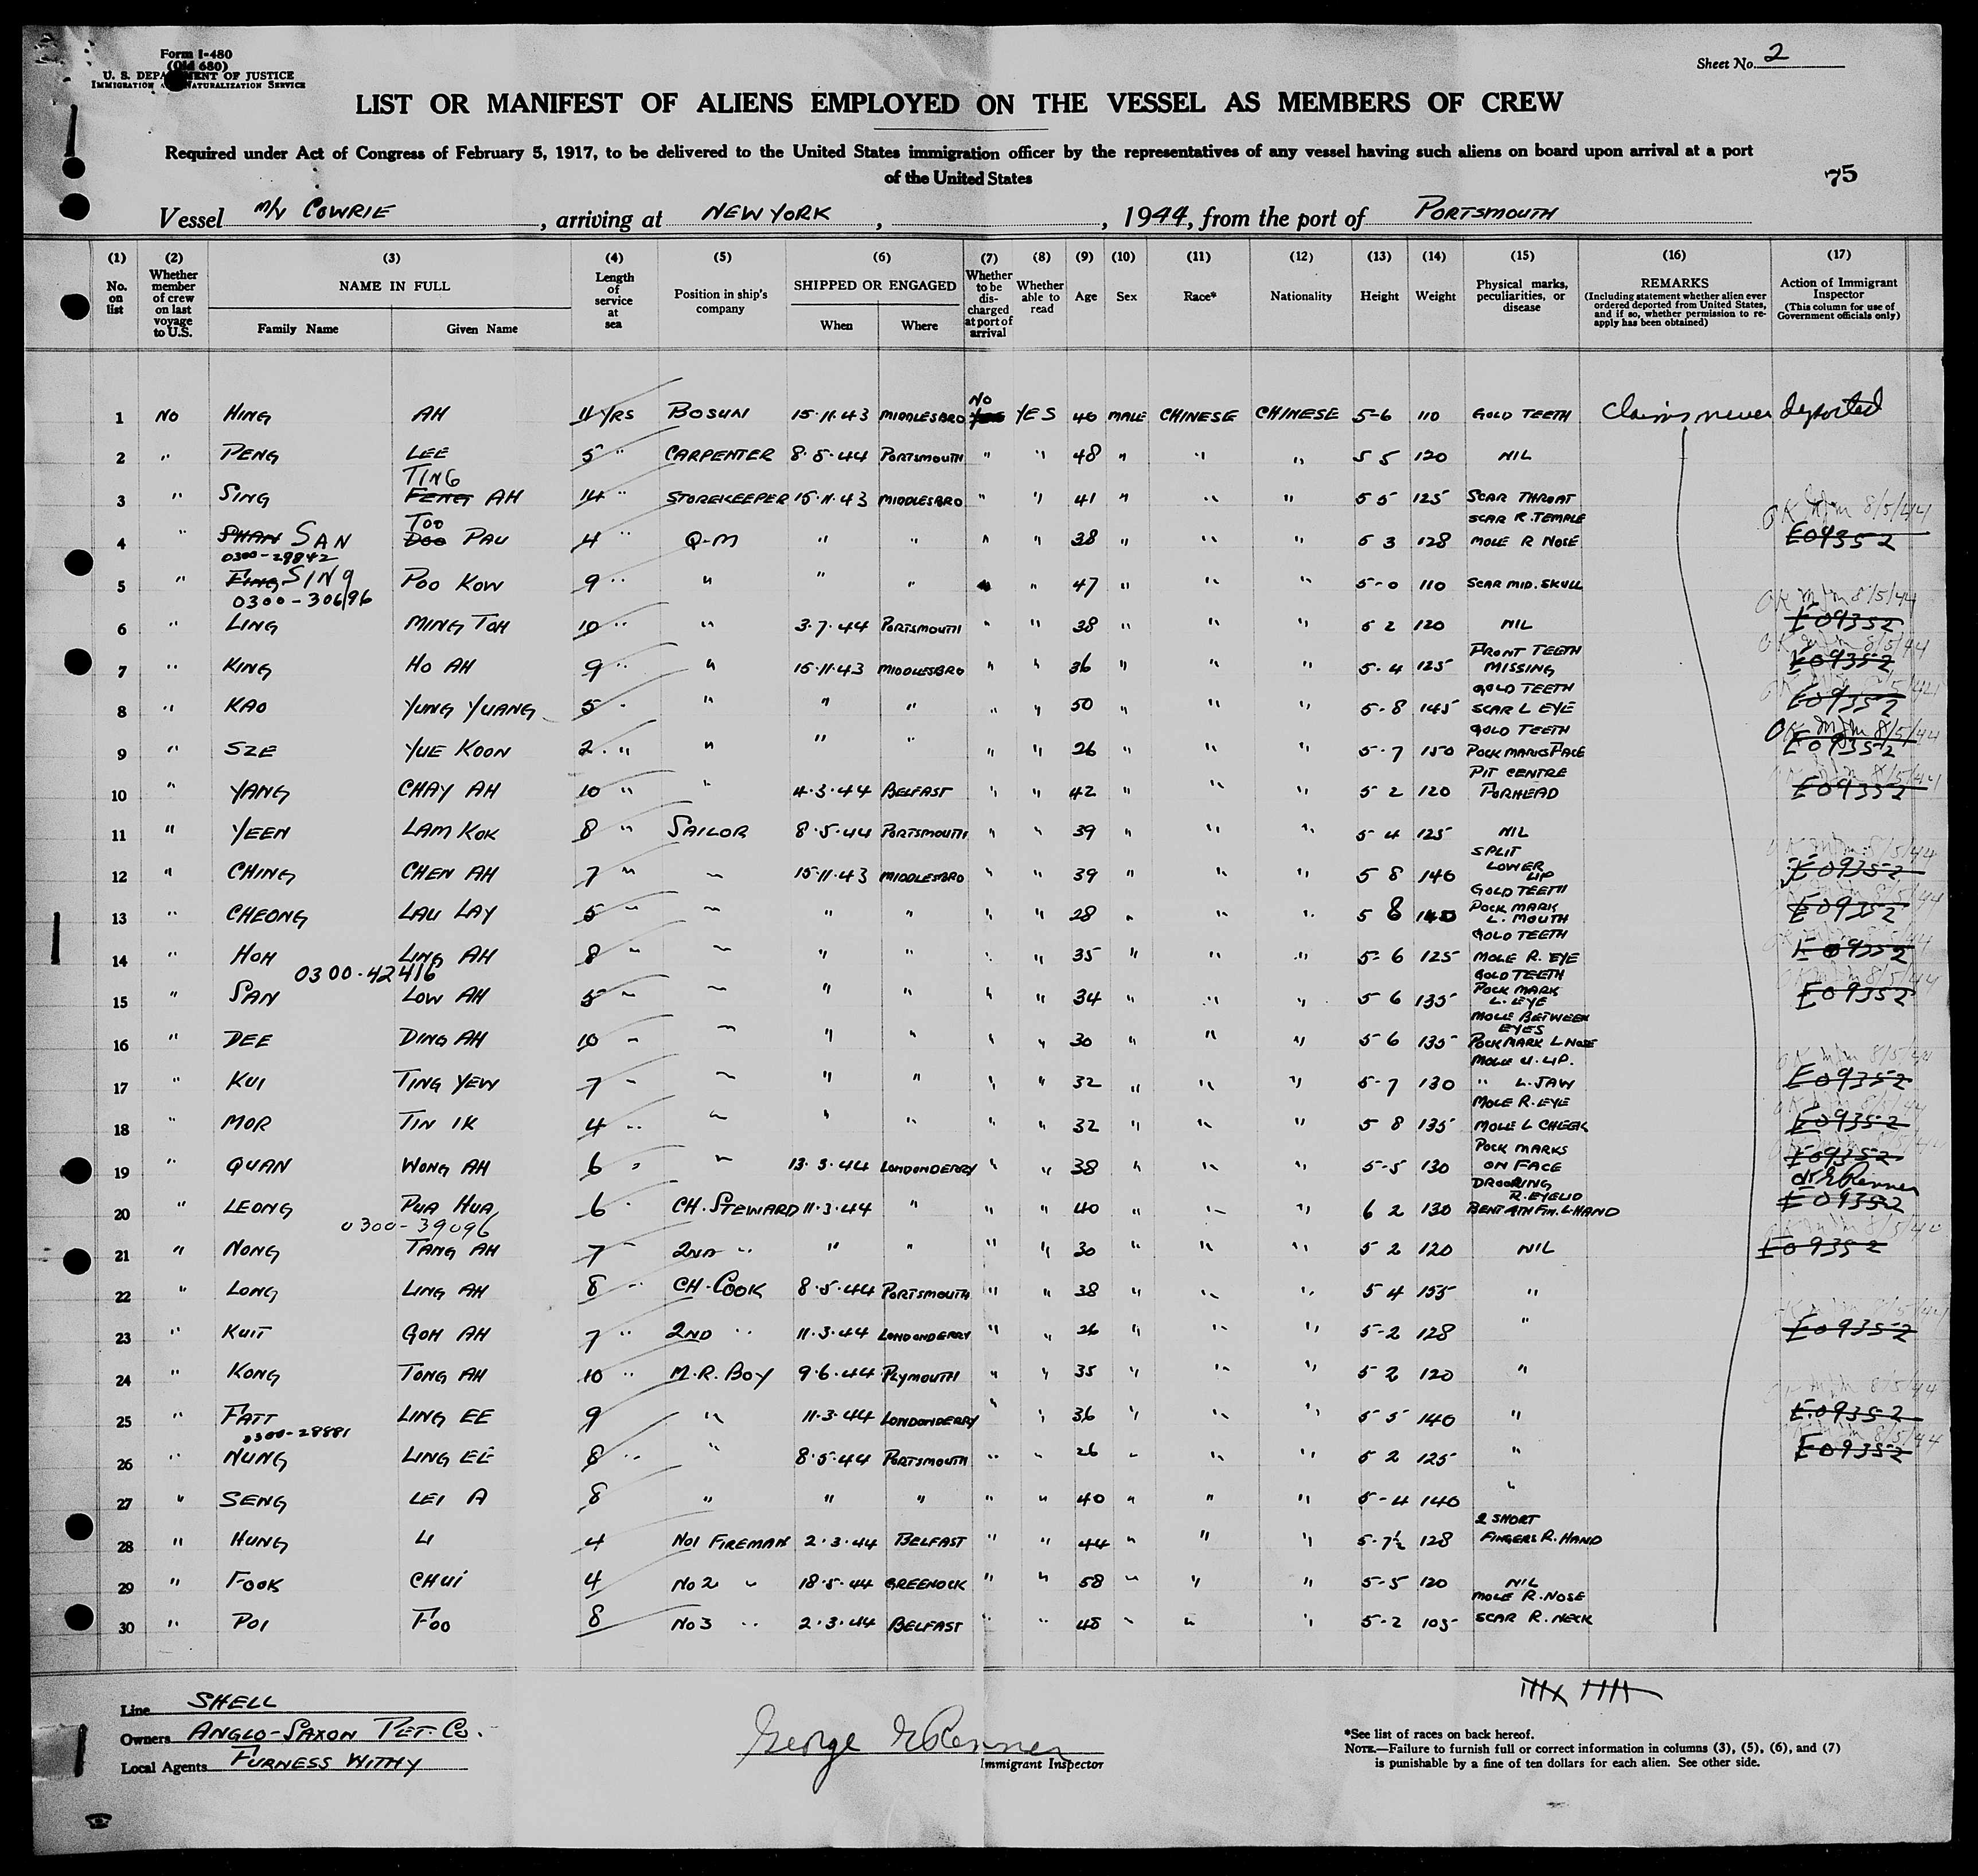 Form I-480
(Old 680)
U. S. DEPARTMENT OF JUSTICE
IMMIGRATION AND NATURALIZATION SERVICE
Sheet No. 2
LIST OR MANIFEST OF ALIENS EMPLOYED ON THE VESSEL AS MEMBERS OF CREW
Required under Act of Congress of February 5, 1917, to be delivered to the United States immigration officer by the representatives of any vessel having such aliens on board upon arrival at a port
of the United States
75
Vessel M/V COWRIE, arriving at NEW YORK, , 1944, from the port of PORTSMOUTH
(1) No. on list (2) Whether member of crew on last voyage to U.S. (3) NAME IN FULL Family Name Given Name (4) Length of service at sea (5) Position in ship's company (6) SHIPPED OR ENGAGED When Where (7) Whether to be discharged at port of arrival (8) Whether able to read (9) Age (10) Sex (11) Race* (12) Nationality (13) Height (14) Weight (15) Physical marks, peculiarities, or disease (16) REMARKS (Including statement whether alien ever ordered deported from United States, and if so, whether permission to re-apply has been obtained) (17) Action of Immigrant Inspector (This column for use of Government officials only)
1 NO HING AH 11 YRS BOSUN 15.11.43 MIDDLESBRO NO YES 40 MALE CHINESE CHINESE 5-6 110 GOLD TEETH Claims never deported
2 " PENG LEE 5 " CARPENTER 8.5.44 PORTSMOUTH " " 48 " " " 5 5 120 NIL
3 " SING TING FENG AH 14 " STOREKEEPER 15.11.43 MIDDLESBRO " " 41 " " " 5 5 125 SCAR THROAT
4 " SHAN SAN 0300-29842 TOO DOO PAU 4 " Q-M " " " " 38 " " " 5 3 128 SCAR R. TEMPLE MOLE R NOSE OK 8/5/44 E09352
5 " SING 0300-30696 POO KOW 9 " " " " " " 47 " " " 5-0 110 SCAR MID. SKULL
6 " LING MING TOH 10 " " 3.7.44 PORTSMOUTH " " 38 " " " 5 2 120 NIL OK 8/5/44 E09352
7 " KING HO AH 9 " " 15.11.43 MIDDLESBRO " " 36 " " " 5.4 125 FRONT TEETH MISSING OK 8/5/44 E09352
8 " KAO YUNG YUANG 5 " " " " " " 50 " " " 5.8 145 GOLD TEETH SCAR L EYE E09352
9 " SZE YUE KOON 2 " " " " " " 26 " " " 5.7 150 GOLD TEETH POCK MARKS FACE OK 8/5/44 E09352
10 " YANG CHAY AH 10 " " 4.3.44 BELFAST " " 42 " " " 5 2 120 PIT CENTRE FORHEAD 8/5/44 E09352
11 " YEEN LAM KOK 8 " SAILOR 8.5.44 PORTSMOUTH " " 39 " " " 5 4 125 NIL
12 " CHING CHEN AH 7 " " 15.11.43 MIDDLESBRO " " 39 " " " 5 8 140 SPLIT LOWER LIP 8/5/44 E09352
13 " CHEONG LAU LAY 5 " " " " " " 28 " " " 5 8 140 GOLD TEETH POCK MARK L. MOUTH E09352
14 " HOH LING AH 8 " " " " " " 35 " " " 5-6 125 GOLD TEETH MOLE R. EYE E09352
0300-42416
15 " SAN LOW AH 5 " " " " " " 34 " " " 5 6 135 GOLD TEETH POCK MARK L. EYE 8/5/44 E09352
16 " DEE DING AH 10 " " " " " " 30 " " " 5 6 135 MOLE BETWEEN EYES POCK MARK L NOSE
17 " KUI TING YEW 7 " " " " " " 32 " " " 5-7 130 MOLE U. LIP. " L. JAW E09352
18 " MOR TIN IK 4 " " " " " " 32 " " " 5 8 135 MOLE R. EYE MOLE L CHEEK E09352
19 " QUAN WONG AH 6 " " 13.3.44 LONDONDERRY " " 38 " " " 5-5 130 POCK MARKS ON FACE E09352
20 " LEONG PUA HUA 6 " CH. STEWARD 11.3.44 " " " 40 " " " 6 2 130 DROOPING R. EYELID BENT 4TH FIN. L. HAND E09352
0300-39096
21 " NONG TANG AH 7 " 2ND " " " " " 30 " " " 5 2 120 NIL E09352
22 " LONG LING AH 8 " CH. COOK 8.5.44 PORTSMOUTH " " 38 " " " 5 4 155 "
23 " KUIT GOH AH 7 " 2ND " 11.3.44 LONDONDERRY " " 26 " " " 5-2 128 " E09352
24 " KONG TONG AH 10 " M.R. BOY 9.6.44 PLYMOUTH " " 35 " " " 5 2 120 "
25 " FATT LING EE 9 " 11.3.44 LONDONDERRY " " 36 " " " 5 5 140 " 8/5/44 E09352
0300-28881
26 " NUNG LING EE 8 " " 8.5.44 PORTSMOUTH " " 26 " " " 5 2 125 " 8/5/44 E09352
27 " SENG LEI A 8 " " " " " 40 " " " 5-4 140 "
28 " HUNG LI 4 NO1 FIREMAN 2.3.44 BELFAST " " 44 " " " 5-7½ 128 2 SHORT FINGERS R. HAND
29 " FOOK CHUI 4 NO 2 " 18.5.44 GREENOCK " " 58 " " " 5-5 120 NIL
30 " POI FOO 8 NO 3 " 2.3.44 BELFAST " " 45 " " " 5-2 105 MOLE R. NOSE SCAR R. NECK
Line SHELL
Owners ANGLO-SAXON PET. CO.
Local Agents FURNESS WITHY
George E Renner
Immigrant Inspector
*See list of races on back hereof.
NOTE.—Failure to furnish full or correct information in columns (3), (5), (6), and (7)
is punishable by a fine of ten dollars for each alien. See other side.